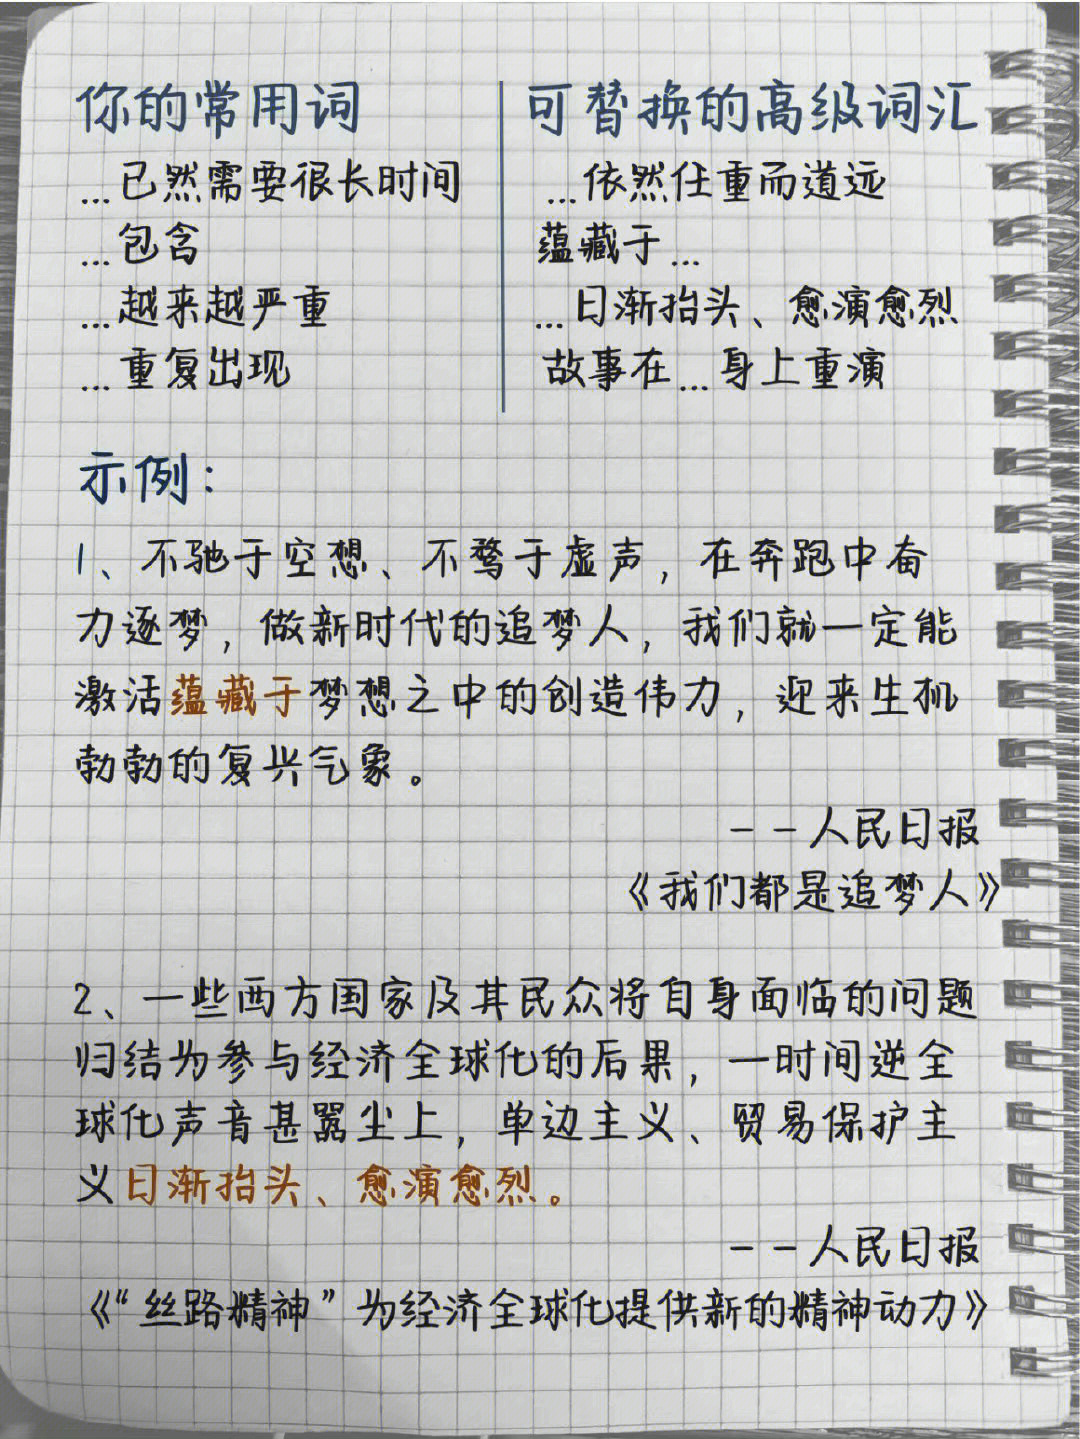 你的常用词 可替换的高级词汇
...已然需要很长时间 ...依然任重而道远
...包含 蕴藏于...
...越来越严重 ...日渐抬头、愈演愈烈
...重复出现 故事在...身上重演
示例：
1、不驰于空想、不骛于虚声，在奔跑中奋
力逐梦，做新时代的追梦人，我们就一定能
激活蕴藏于梦想之中的创造伟力，迎来生机
勃勃的复兴气象。
——人民日报
《我们都是追梦人》
2、一些西方国家及其民众将自身面临的问题
归结为参与经济全球化的后果，一时间逆全
球化声音甚嚣尘上，单边主义、贸易保护主
义日渐抬头、愈演愈烈。
——人民日报
《“丝路精神”为经济全球化提供新的精神动力》